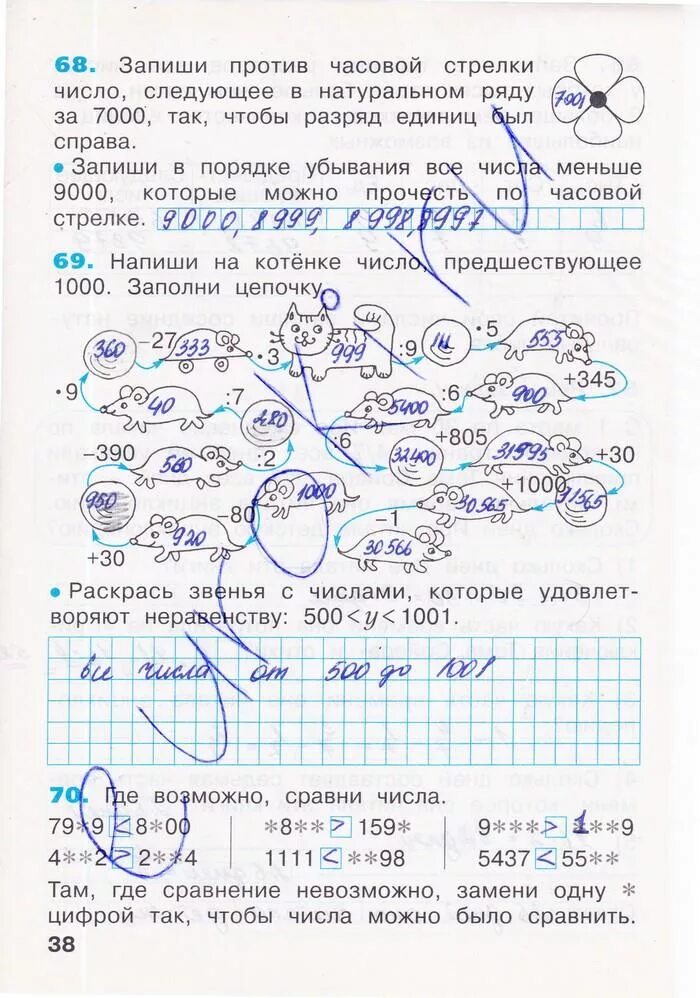 68. Запиши против часовой стрелки
число, следующее в натуральном ряду
за 7000, так, чтобы разряд единиц был
справа.
7001
• Запиши в порядке убывания все числа меньше
9000, которые можно прочесть по часовой
стрелке. 9000, 8999, 8998, 8997
69. Напиши на котёнке число, предшествующее
1000. Заполни цепочку.
360 −27 333 ·3 999 :9 111 ·5 555
·9 40 :7 280 5400 :6 900 +345
+390 560 :2 :6 32400 +805 31595 +30
950 920 −80 1000 30565 +1000 31565
+30 −1 30566
• Раскрась звенья с числами, которые удовлет-
воряют неравенству: 500 < y < 1001.
все числа от 500 до 1001
70. Где возможно, сравни числа.
79*9 < 8*00 *8** > 159* 9*** > 1**9
4**2 > 2**4 1111 < **98 5437 < 55**
Там, где сравнение невозможно, замени одну *
цифрой так, чтобы числа можно было сравнить.
38